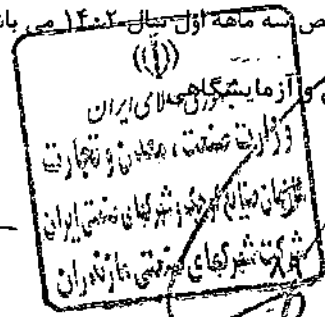 ص سه ماهه اول سال ۱۴۰۲ می باش
و آزمایشگاهی
جمهوری اسلامی ایران
وزارت صنعت، معدن و تجارت
سازمان صنایع کوچک و شهرکهای صنعتی ایران
شرکت شهرکهای صنعتی مازندران